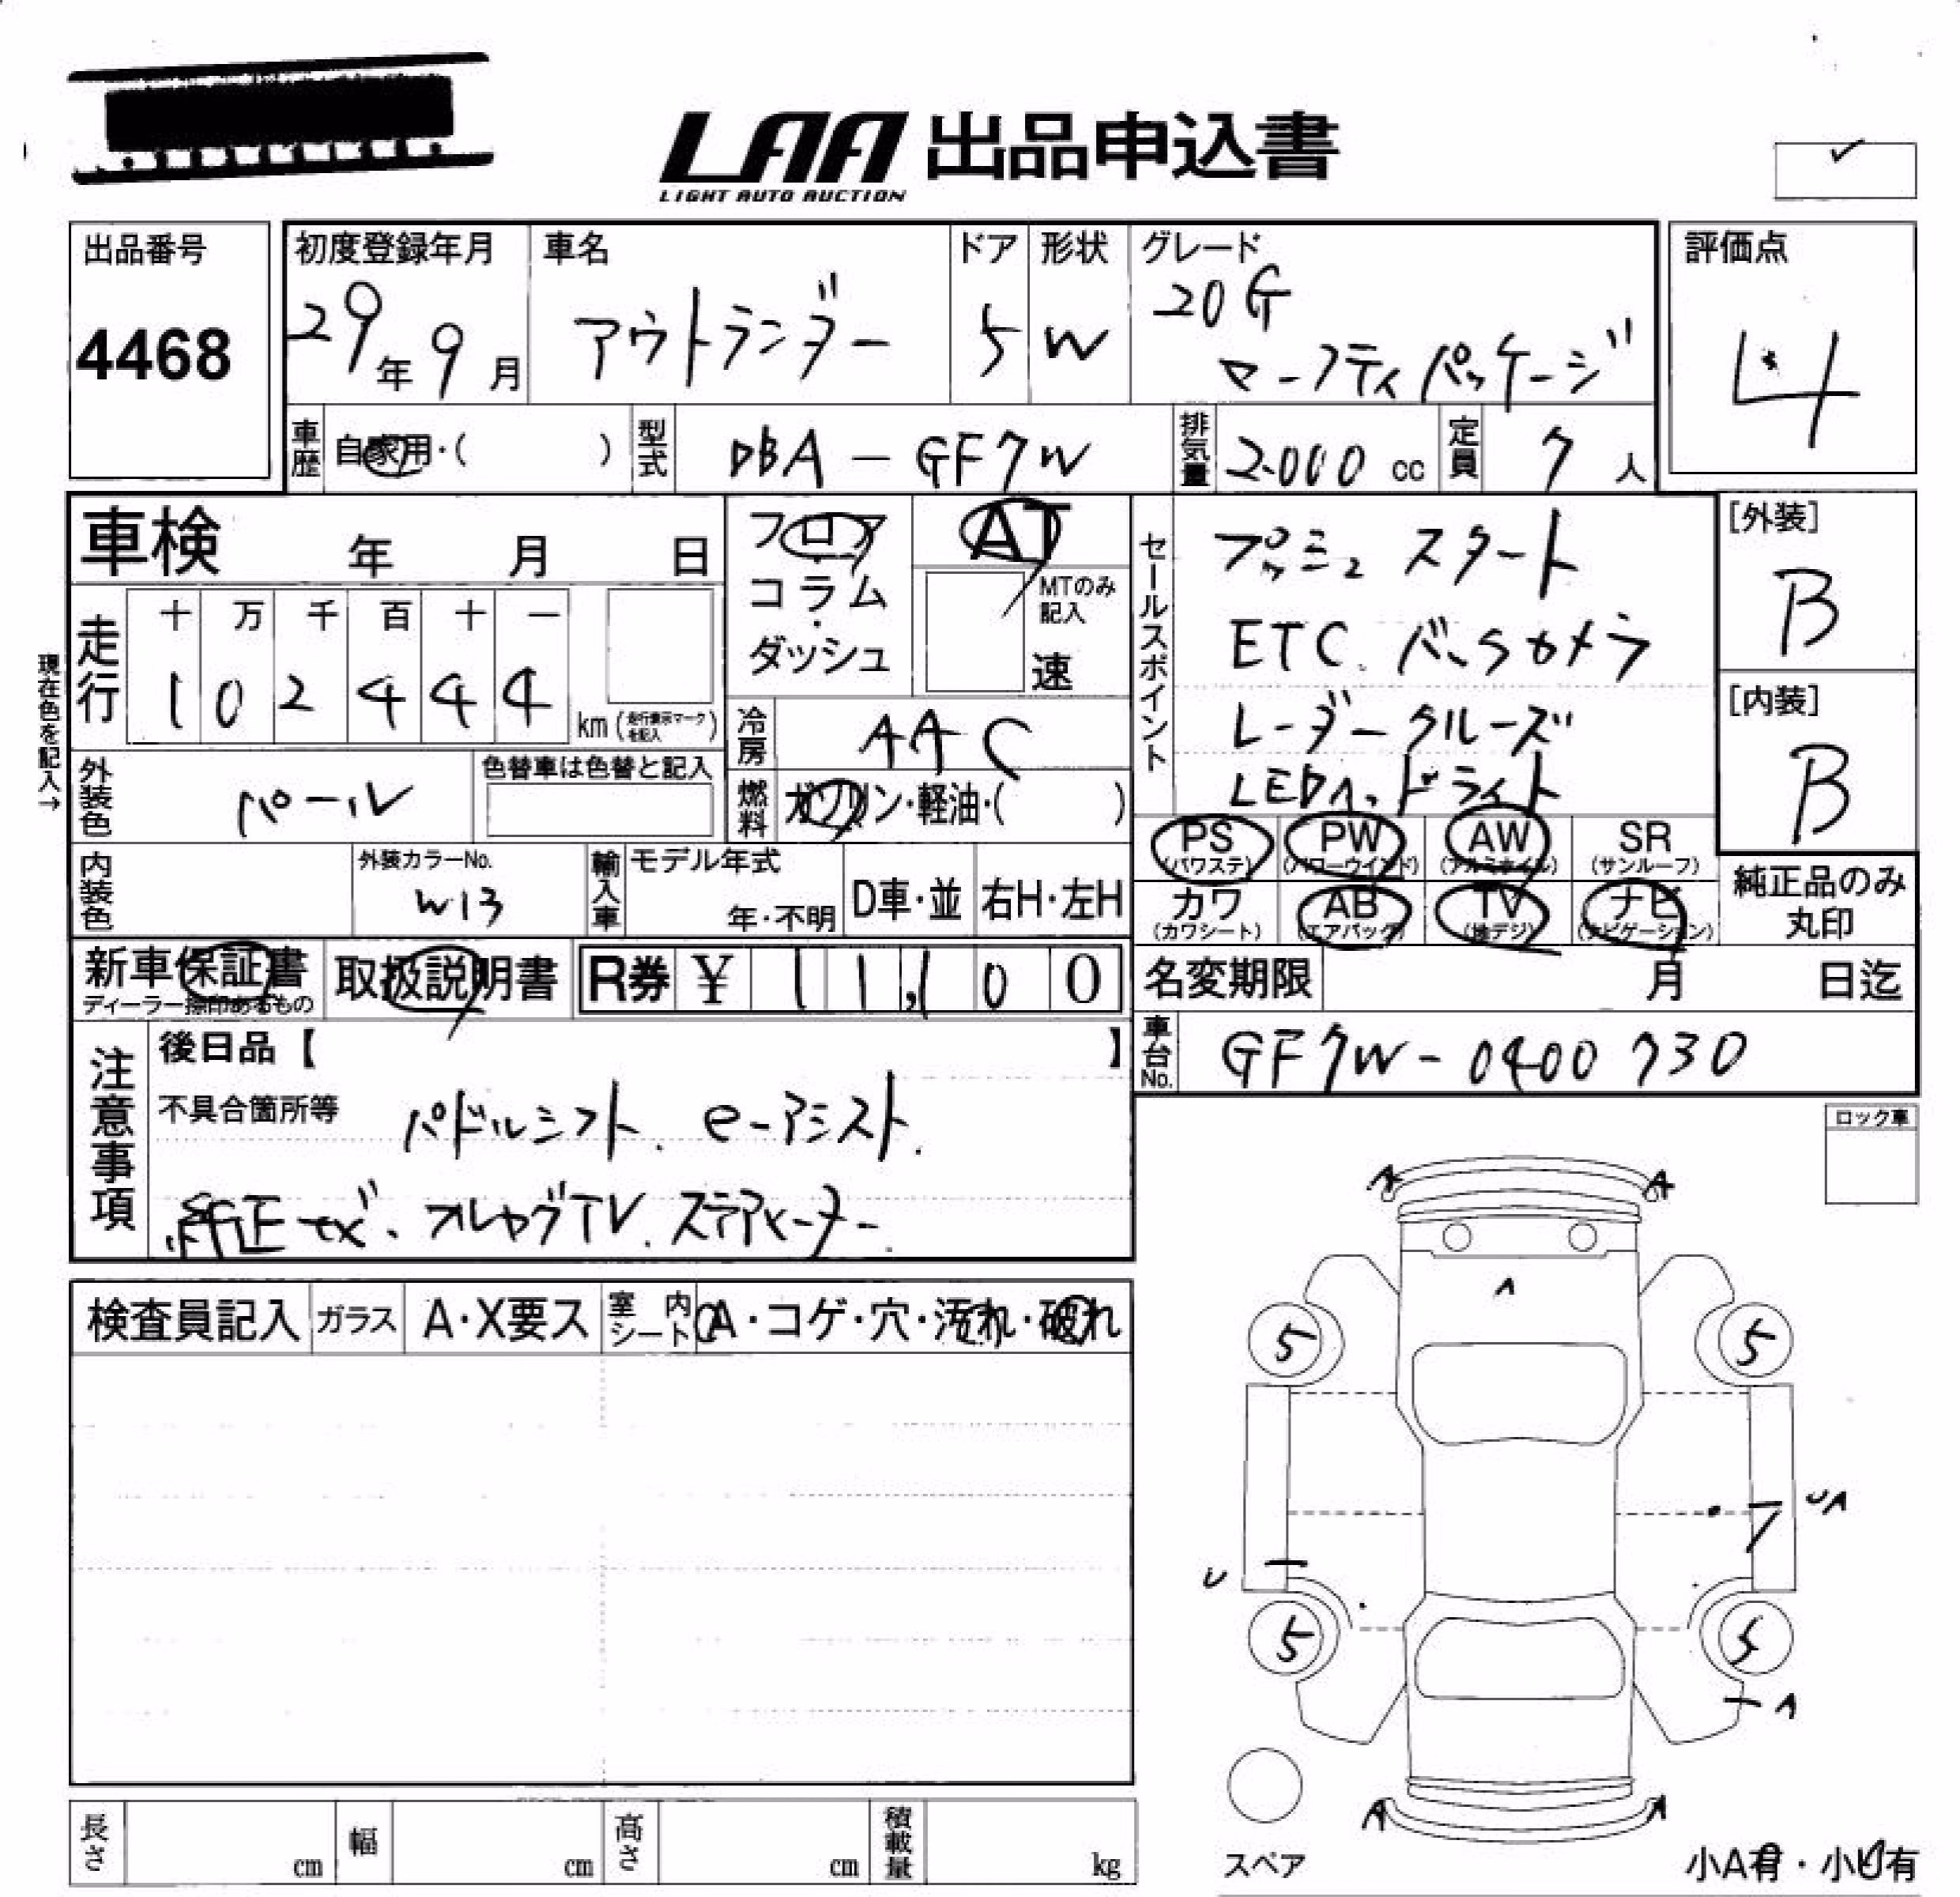 LAA 出品申込書
LIGHT AUTO AUCTION
出品番号
4468
初度登録年月
29年9月
車名
アウトランダー
ドア
5
形状
W
グレード
20G
セーフティパッケージ
評価点
4
車歴
自家用・( )
型式
DBA-GF7W
排気量
2.000 cc
定員
7 人
車検 年 月 日
フロア
・
コラム
・
ダッシュ
AT
MTのみ
記入
速
セールスポイント
プッシュスタート
ETC. バックカメラ
レーダークルーズ
LEDヘッドライト
[外装]
B
[内装]
B
現在色を記入→
走行
十 万 千 百 十 一
1 0 2 4 4 4
km (走行表示マークを記入)
冷房
AAC
燃料
ガソリン・軽油・( )
外装色
パール
色替車は色替と記入
内装色
外装カラーNo.
W13
輸入車
モデル年式
年・不明
D車・並
右H・左H
PS
(パワステ)
PW
(パワーウインド)
AW
(アルミホイル)
SR
(サンルーフ)
カワ
(カワシート)
AB
(エアバック)
TV
(地デジ)
ナビ
(ナビゲーション)
純正品のみ
丸印
新車保証書
ディーラー捺印あるもの
取扱説明書
R券 ¥ 11,100
名変期限 月 日迄
車台No.
GF7W-0400730
注意事項
後日品【 】
不具合箇所等
パドルシフト. e-アシスト.
純正ナビ、フルセグTV.
ロック車
検査員記入
ガラス
A・X要ス
室内
シート
A・コゲ・穴・汚れ・破れ
A A
A
5 5
UA
U
5 5
A
A A
スペア
小A有・小U有
長さ cm
幅 cm
高さ cm
積載量 kg